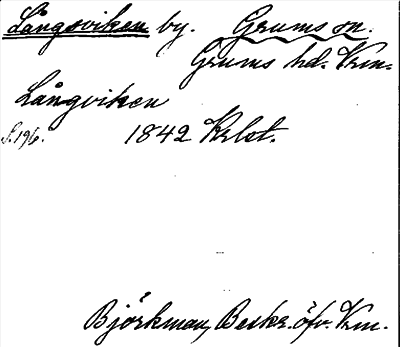 Långsviken by. Grums sn.
Grums hd. Vrm.
Långviken
s. 196. 1842 Krlst.
Björkman, Beskr. öfv. Vrm.